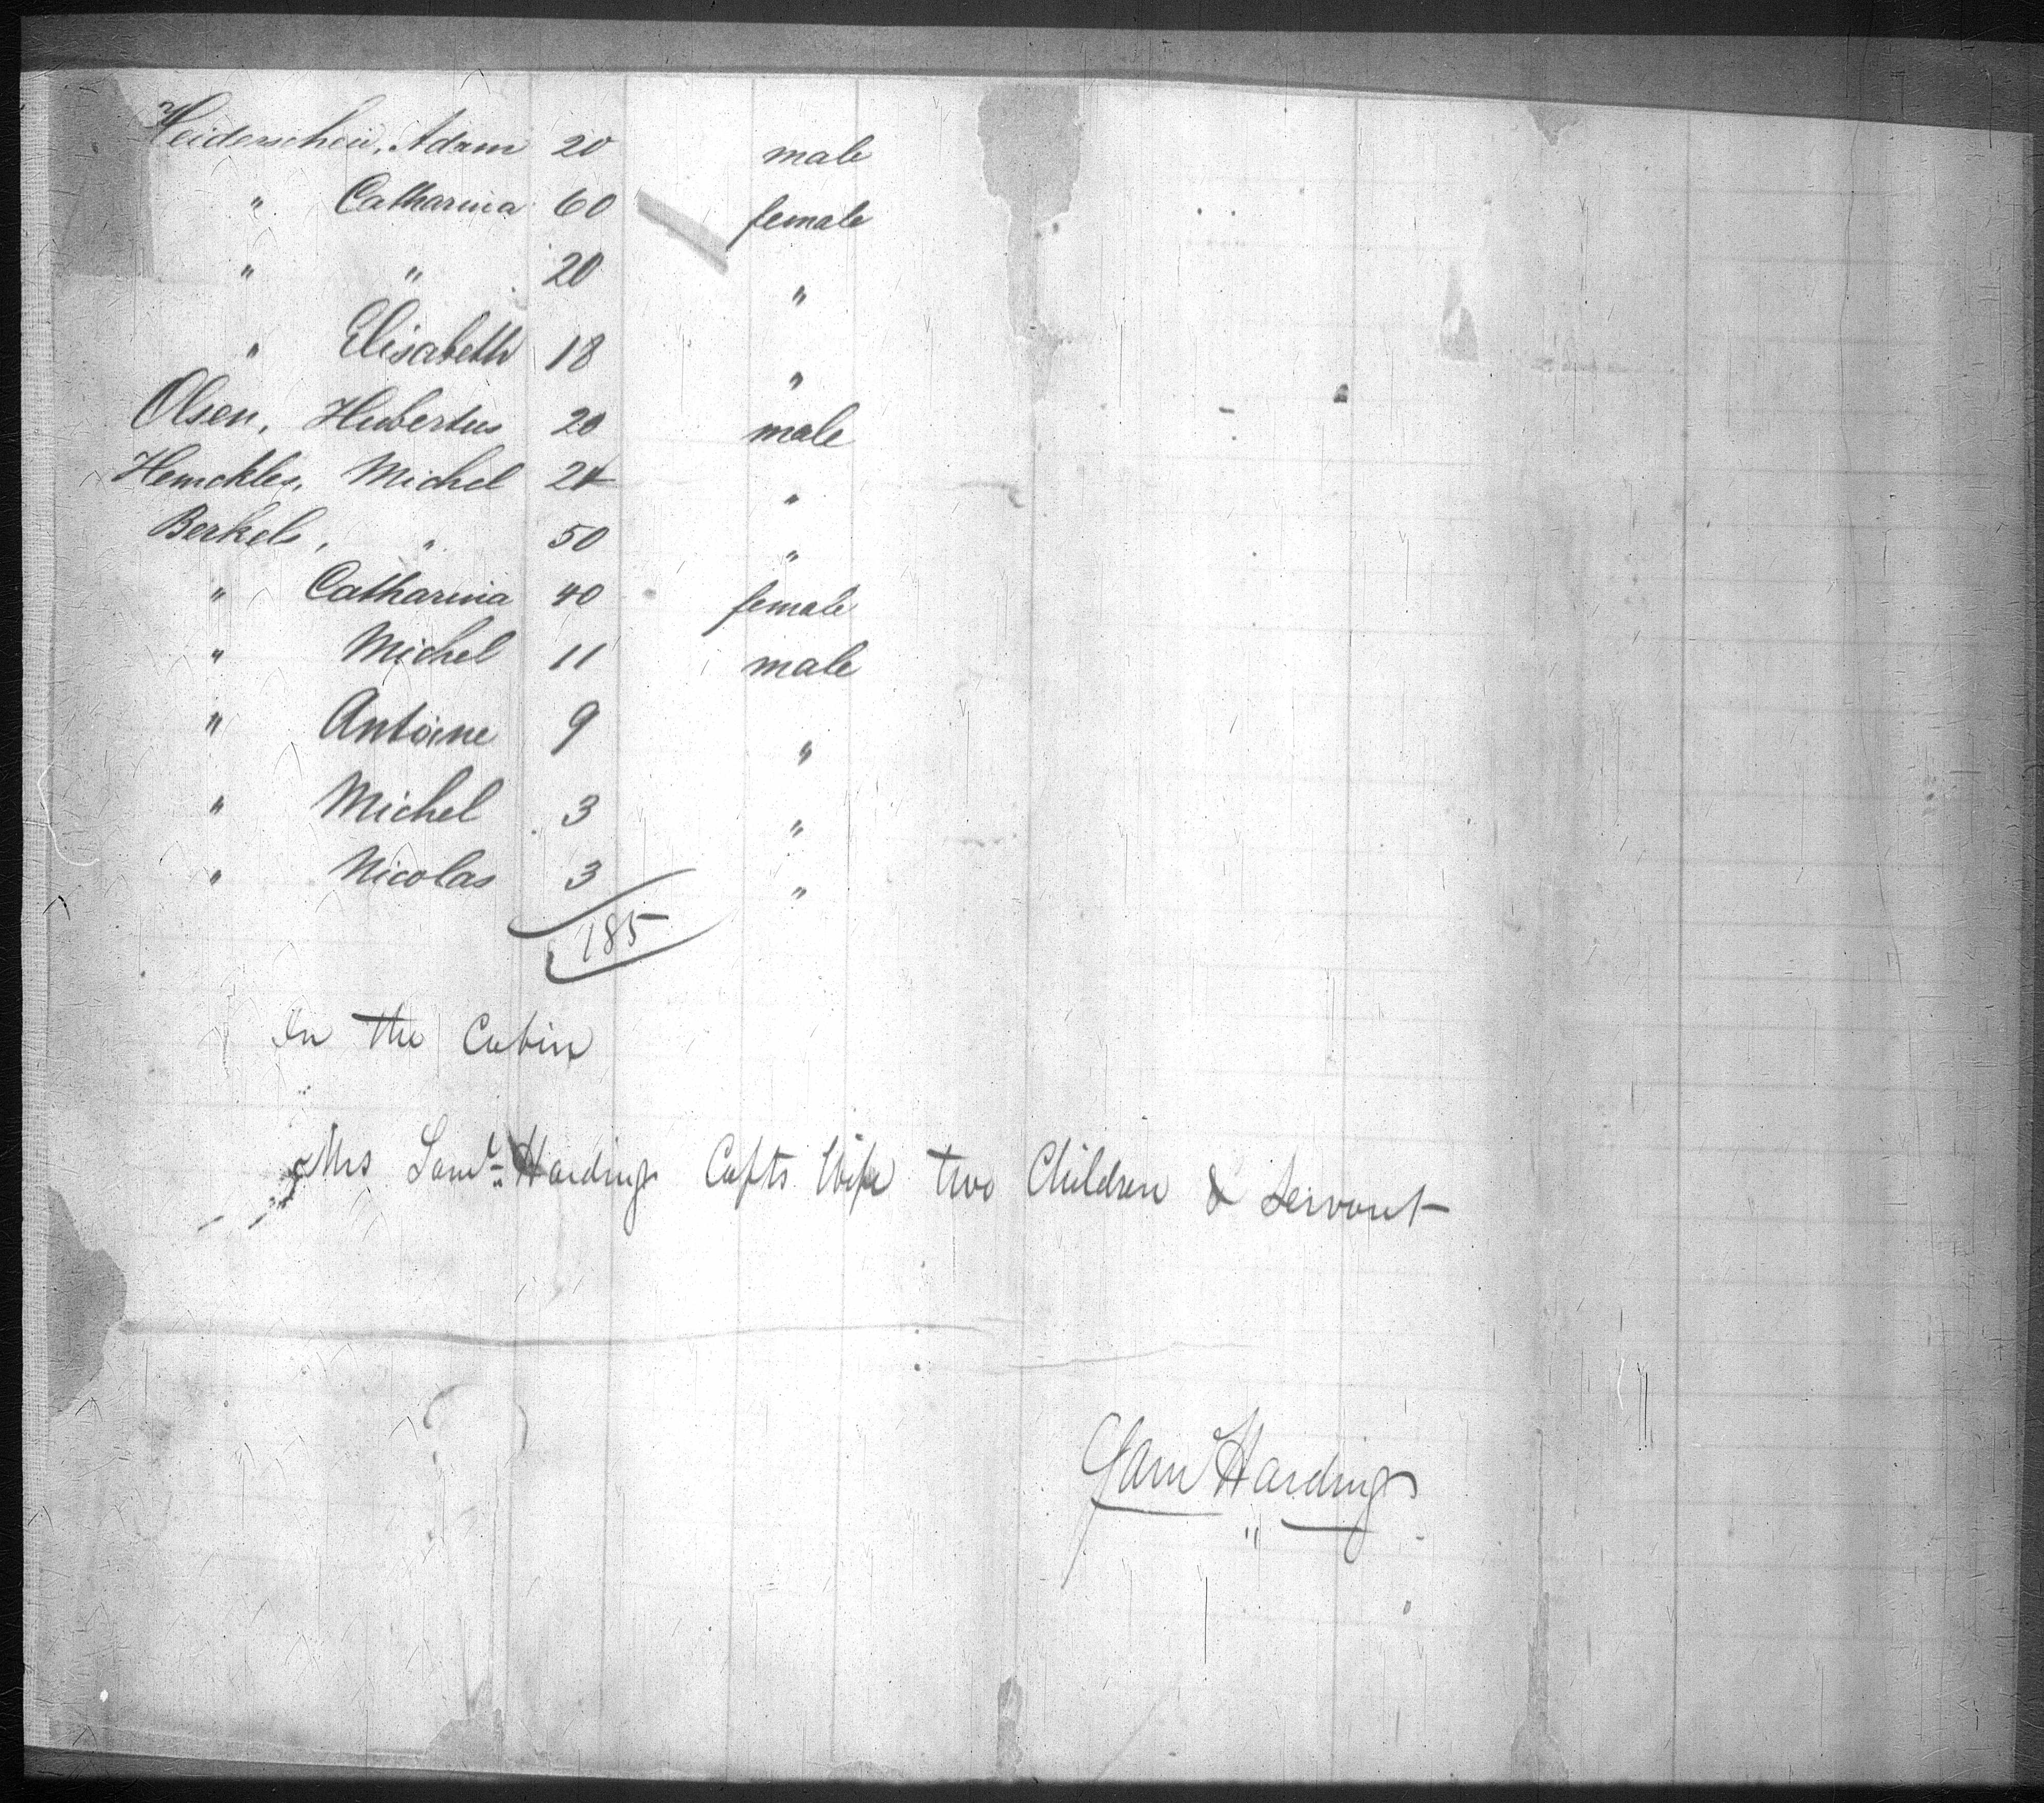 Heiderscheii, Adam 20 male
" Catharina 60 female
" " 20 "
" Elisabeth 18 "
Olsen, Hubertus 20 male
Henckles, Michel 24 "
Berkels, " 50 "
" Catharina 40 female
" Michel 11 male
" Antoine 9 "
" Michel 3 "
" Nicolas 3 "
185
In the Cabin
Mrs Saml Harding Capts Wife two Children & Servant
Sam Harding